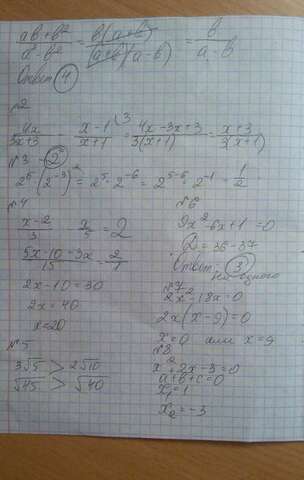 ab+b² / a²-b² = b(a+b) / (a+b)(a-b) = b / a-b
Ответ 4
№2
4x / 3x+3 - x-1 / x+1 \3 = 4x-3x+3 / 3(x+1) = x+3 / 3(x+1)
№3 - 2
2⁵(2⁻³)² = 2⁵·2⁻⁶ = 2⁵⁻⁶ = 2⁻¹ = 1/2
№4
x-2 / 3 - x/5 = 2
5x-10-3x / 15 = 2/1
2x-10=30
2x=40
x=20
№5
3√5 > 2√10
√45 > √40
№6
9x²-6x+1=0
D=36-37
Ответ 3
ни одного
№7
2x²-18x=0
2x(x-9)=0
x=0 или x=9
№8
x²+2x-3=0
a+b+c=0
x₁=1
x₂=-3